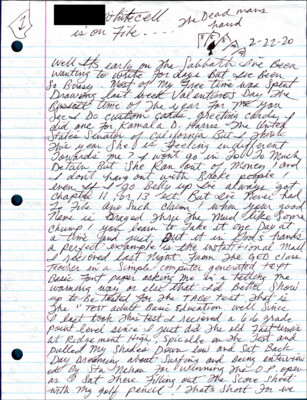 1
Whitecell
is on File....
The Dead mans
hand
2-22-20
Well It's early on The Sabbath I've Been
wanting to write for days But I've Been
So Bussy. Most of My Free time was Spent
Drawing last week Valentine's Day The
Bussiest time of The year For me you
See I Do custom cards, greeting cards, I
did one For Kamala D. Harris The United
States Senator of California But I Think
This year She is Feeling different
Towards me? I wont go in Too Much
Detail But She Ran out of Money! and
I don't hang out with Broke people!
even If I go Belly up I've always got
Chapter 11, or 13? yet. But I've Never had
To File any Such Claim. When your good
Name is Draged Thru The Mud like Some
chump, you learn to Take it one Day at
a time and Just Put it in God's hands
a perfect example is the
I recieved last Night From The GED class
Teacher in a Simple computer generated
Basic Font paper asking me in a
warning way or else that I'd better Show
up to be Tested for The TABE Test That is
The test adult Basic Education well Since
I last took The test I recieved a 6th grade
point level since I Just did The old
at Redirement High, Spicolle on The Test and
pulled My Shades Down low and Sat Back
Day Dreaming about Surfing and Being interview
ed By Stu Nehan For winning The O.P. open
as I Sat There Filling out The Score Sheet
with My golf pencil! That's Short For we